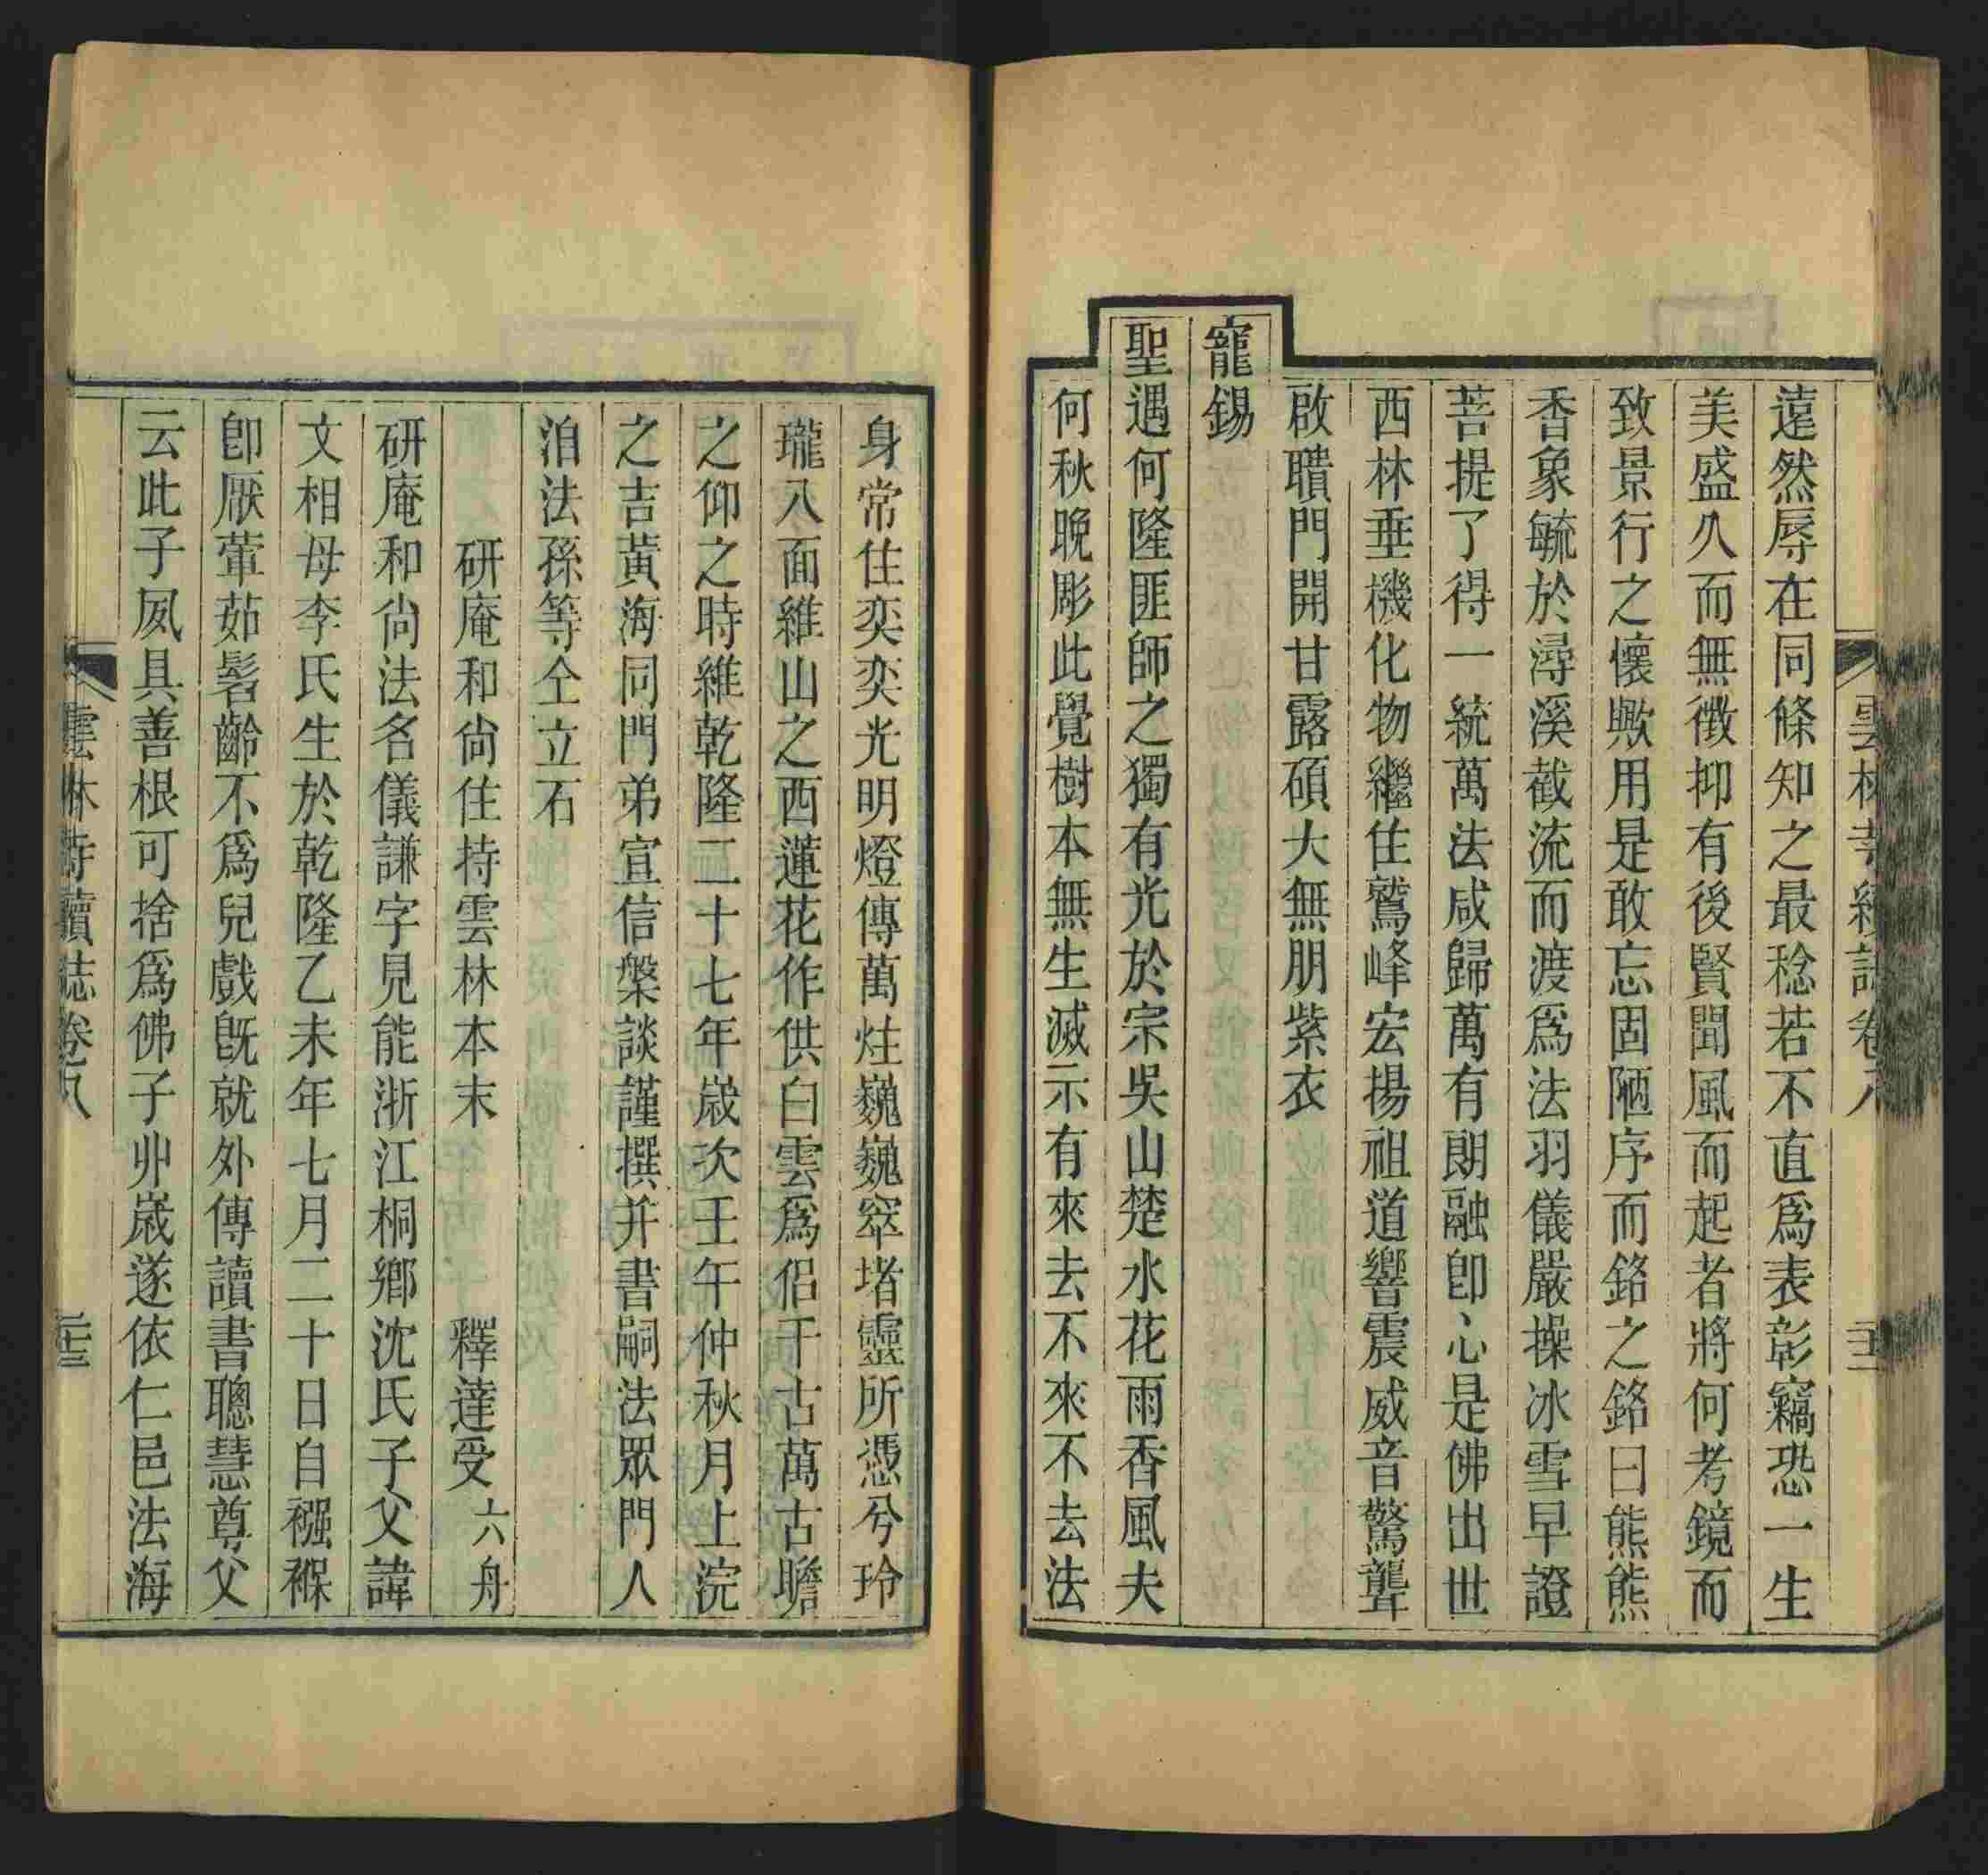 雲林寺續誌卷八
遠然辱在同條知之最稔若不直爲表彰竊恐一生
美盛久而無徴抑有後賢聞風而起者將何考鏡而
致景行之懷歟用是敢忘固陋序而銘之銘曰熊熊
香象毓於潯溪截流而渡爲法羽儀嚴操冰雪早證
菩提了得一統萬法咸歸萬有朗融卽心是佛出世
西林垂機化物繼住鷲峰宏揚祖道響震威音驚聾
啟聵門開甘露碩大無朋紫衣
寵錫
聖遇何隆匪師之獨有光於宗吳山楚水花雨香風夫
何秋晩彫此覺樹本無生滅示有來去不來不去法
身常住奕奕光明燈傳萬炷巍巍窣堵靈所憑兮玲
瓏八面維山之西蓮花作供白雲爲侶千古萬古瞻
之仰之時維乾隆二十七年歲次壬午仲秋月上浣
之吉黃海同門弟宣信槃談謹撰并書嗣法眾門人
洎法孫等仝立石
研庵和尙住持雲林本末 釋達受 六舟
研庵和尙法名儀謙字見能浙江桐鄉沈氏子父諱
文相母李氏生於乾隆乙未年七月二十日自襁褓
卽厭葷茹髫齡不爲兒戲旣就外傅讀書聰慧尊父
云此子夙具善根可捨爲佛子丱歲遂依仁邑法海
雲林寺續誌卷八 二十三